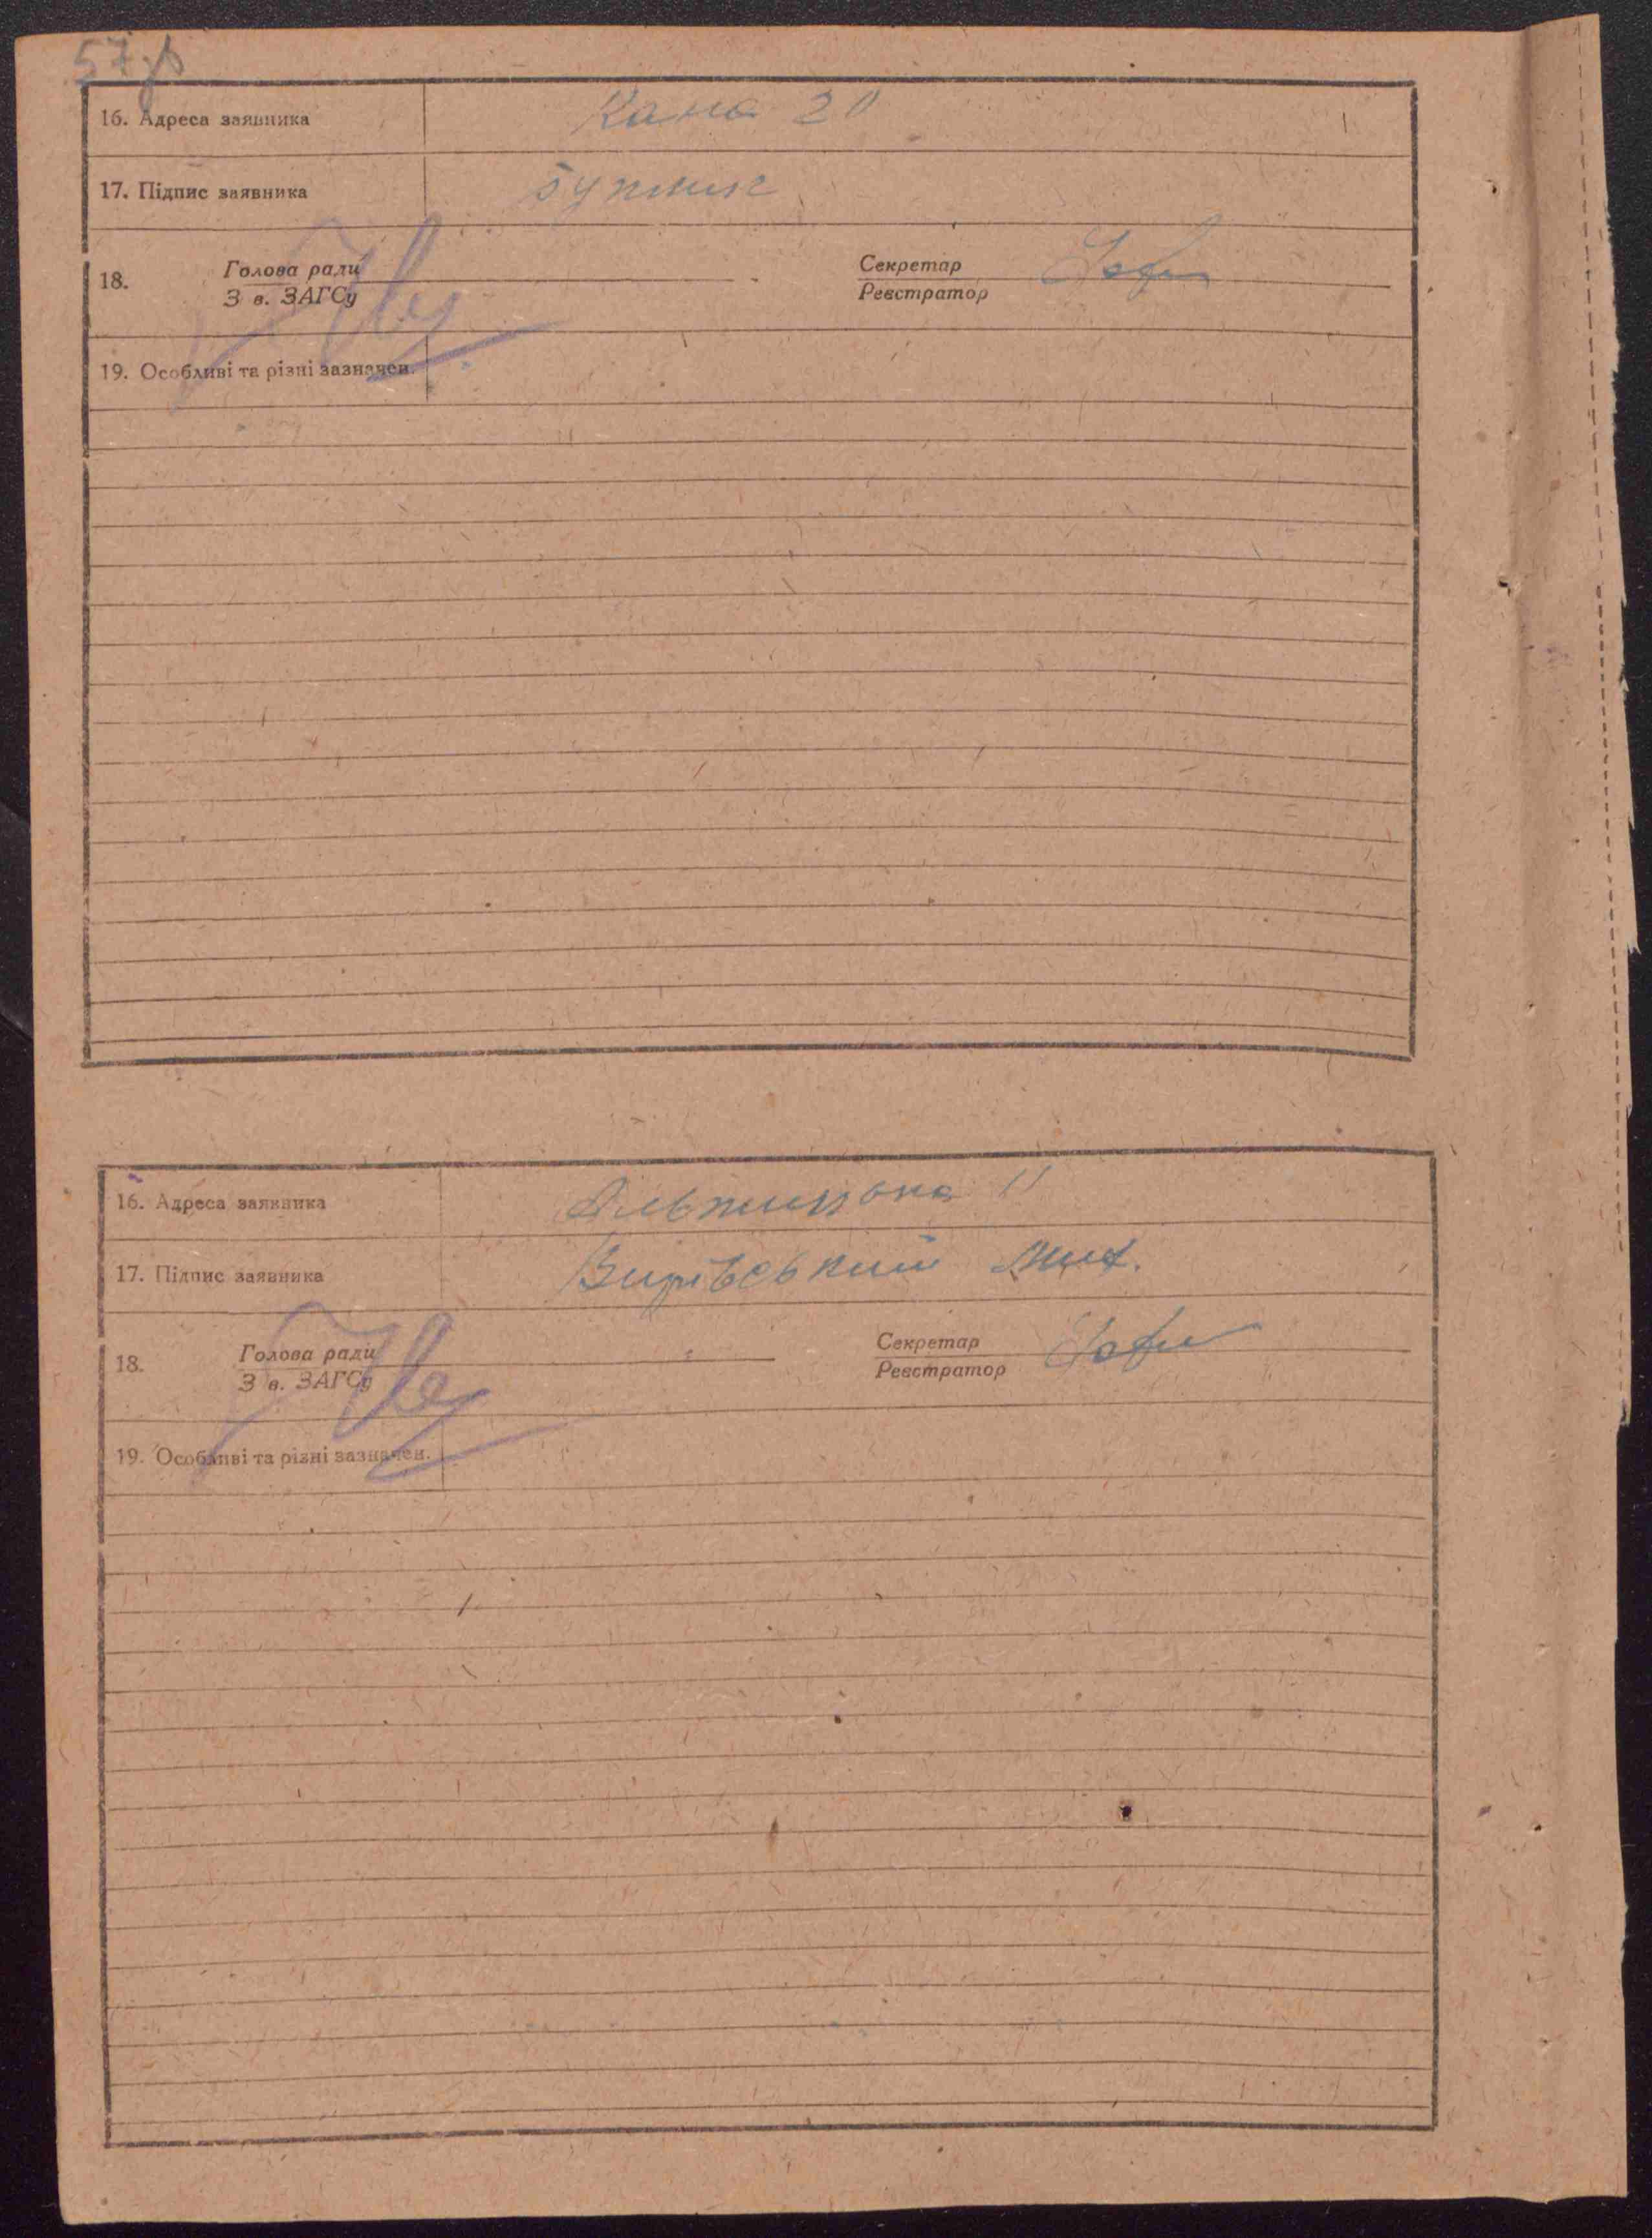 57 зв
16. Адреса заявника Кана 20
17. Підпис заявника
18. Голова ради Секретар
З в. ЗАГСу Реєстратор
19. Особливі та різні зазначен.
16. Адреса заявника 11
17. Підпис заявника Вирівський Мих.
18. Голова ради Секретар
З в. ЗАГСу Реєстратор
19. Особливі та різні зазначен.